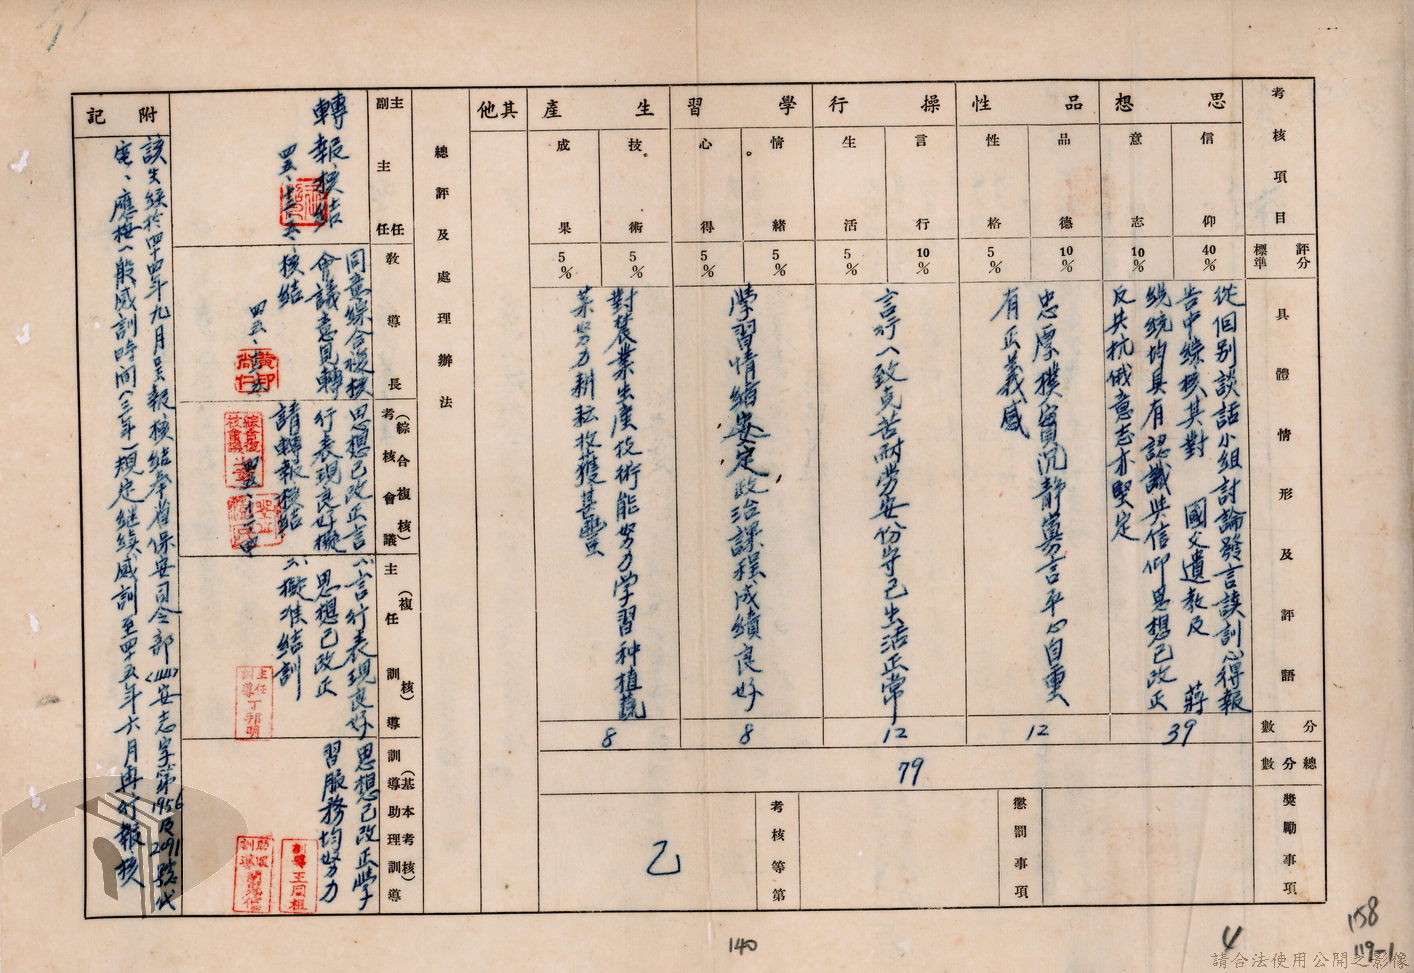 考核項目
思想
信仰
意志
品性
品德
性格
操行
言行
生活
學習
情緒
心得
生產
技術
成果
其他
評分標準
40%
10%
10%
5%
10%
5%
5%
5%
5%
5%
具體情形及評語
從個別談話小組討論發言談訓心得報
告中綜核其對 國父遺教及 蔣
總統均具有認識與信仰思想已改正
反共抗俄意志亦堅定
忠厚樸實沉靜寡言平心自重
有正義感
言行一致克苦耐勞安份守己生活正常
學習情緒安定政治課程成績良好
對農業生產技術能努力学習种植蔬
菜努力耕耘收獲甚豐
分數
39
12
12
8
8
總分數
79
獎勵事項
懲罰事項
考核等第
乙
總評及處理辦法
主任
副主任
轉報核結
教導長
同意綜合複核
會議意見轉
核結
(綜合複核)
考核會議
思想已改正言
行表現良好擬
請轉報核結
(複核)
主任訓導
言行表現良好
思想已改正
擬准結訓
主任訓導丁邦明
(基本考核)
訓導助理訓導
思想已改正學
習服務均努力
附記
該生經於四十四年九月呈報核結奉省保安司令部(44)安志字第1956及2091號代
電、應按一般感訓時間(三年)規定継续感訓至四十五年六月再行報核
140
4
158
119-1
請合法使用公開之影像